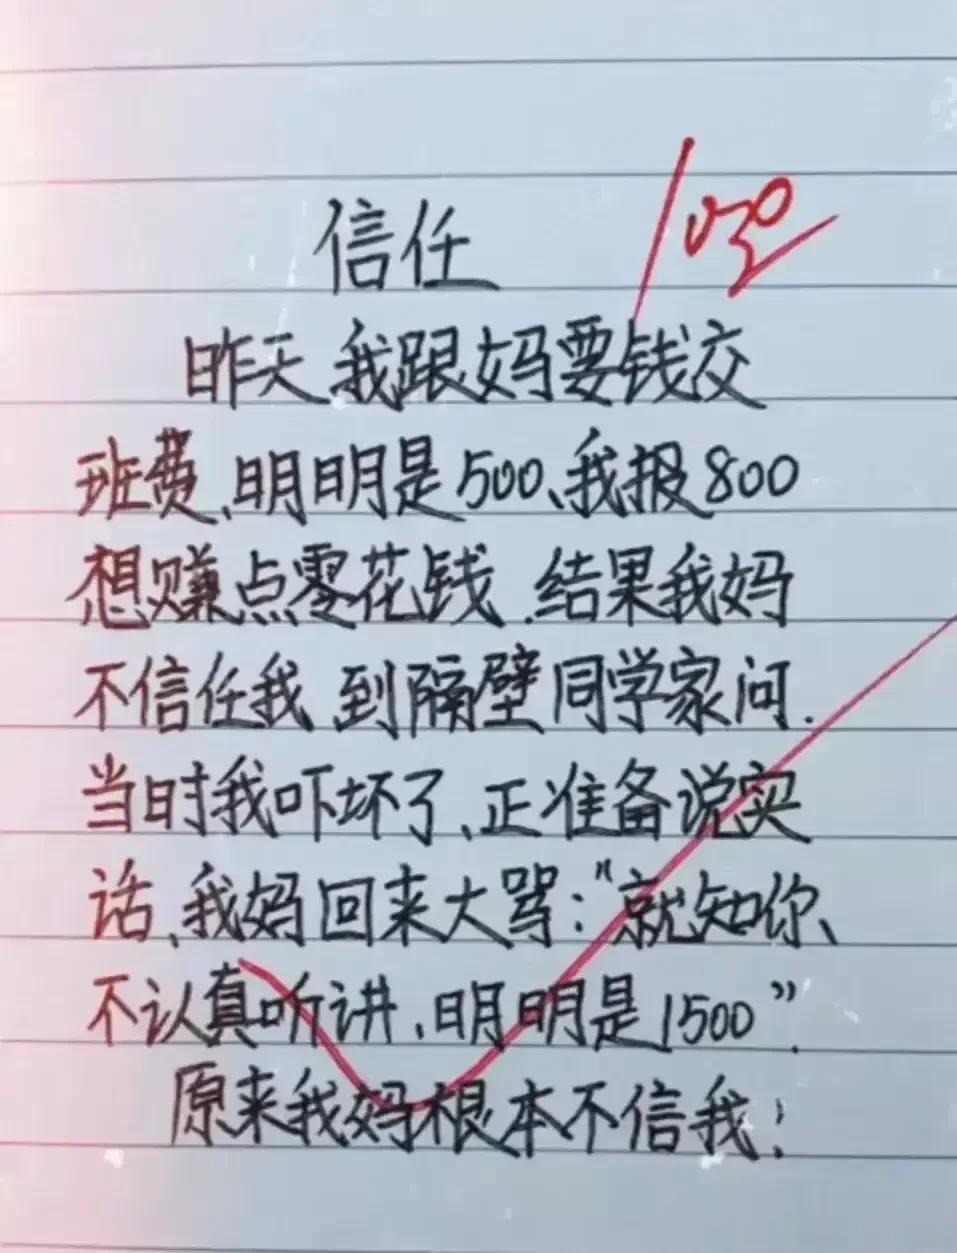 信任
昨天、我跟妈要钱交
班费、明明是500、我报800
想赚点零花钱.结果我妈
不信任我、到隔壁同学家问.
当时我吓坏了、正准备说实
话、我妈回来大骂:“就知你、
不认真听讲、明明是1500”.
原来我妈根本不信我;